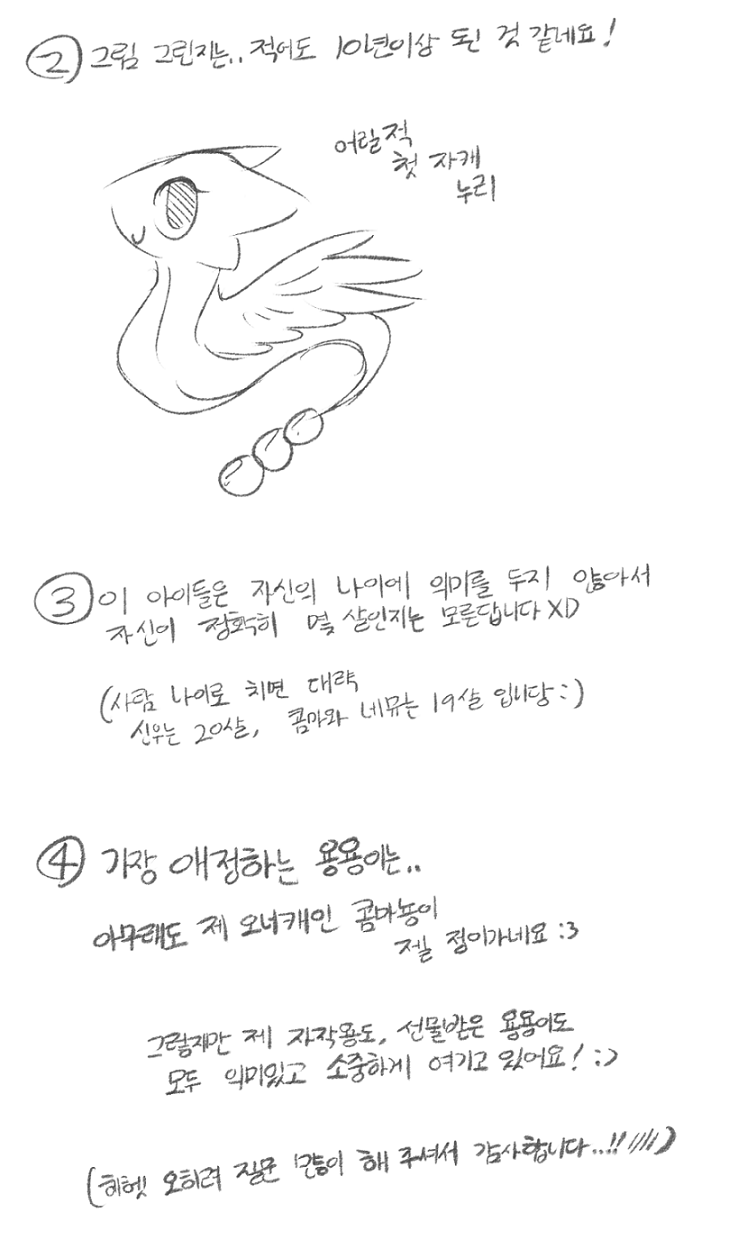 ② 그림 그린지는.. 적어도 10년이상 된 것 같네요!
어릴적
첫 자캐
누리
③ 이 아이들은 자신의 나이에 의미를 두지 않아서
자신이 정확히 몇 살인지는 모른답니다 XD
(사람 나이로 치면 대략
신우는 20살, 콤마와 네뮤는 19살 입니당 :)
④ 가장 애정하는 용용이는..
아무래도 제 오너캐인 콤마뇽이
젤 정이가네요 :3
그렇지만 제 자작용도, 선물받은 용용이도
모두 의미있고 소중하게 여기고 있어요! :>
(헤헷 오히려 질문 많이 해 주셔서 감사합니다..!! ////)